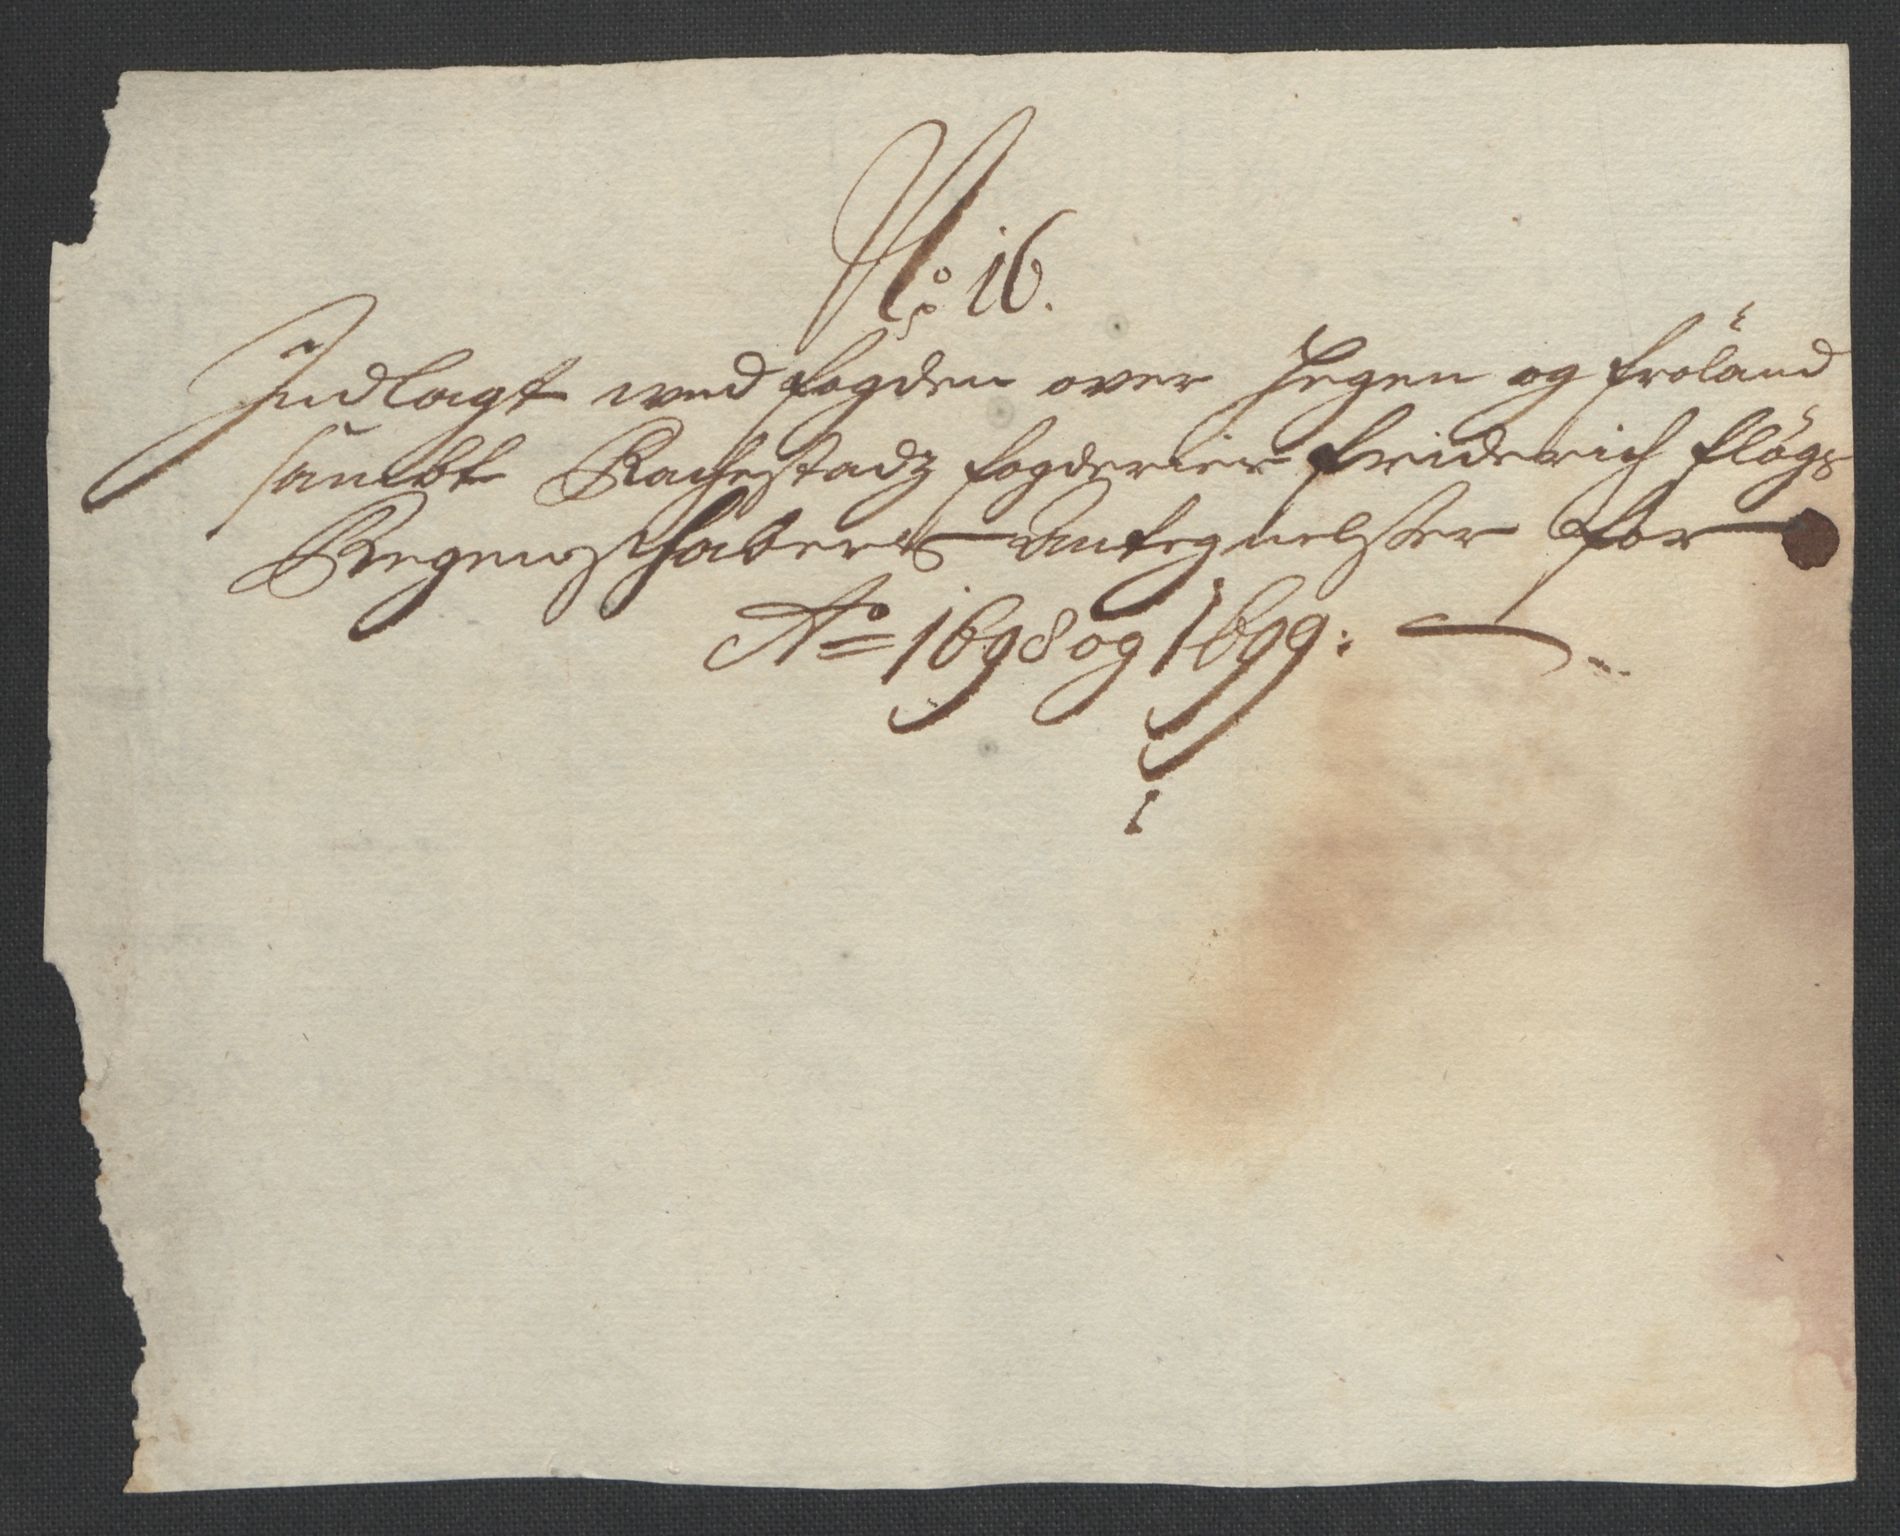 No: 16.
Indlagt wed fogden over Hegen og Fröland
sambt Rachestadz fogderier Friderich Flögs
Regenschabers Antegnelsser for
Ao 1698 og 1699: